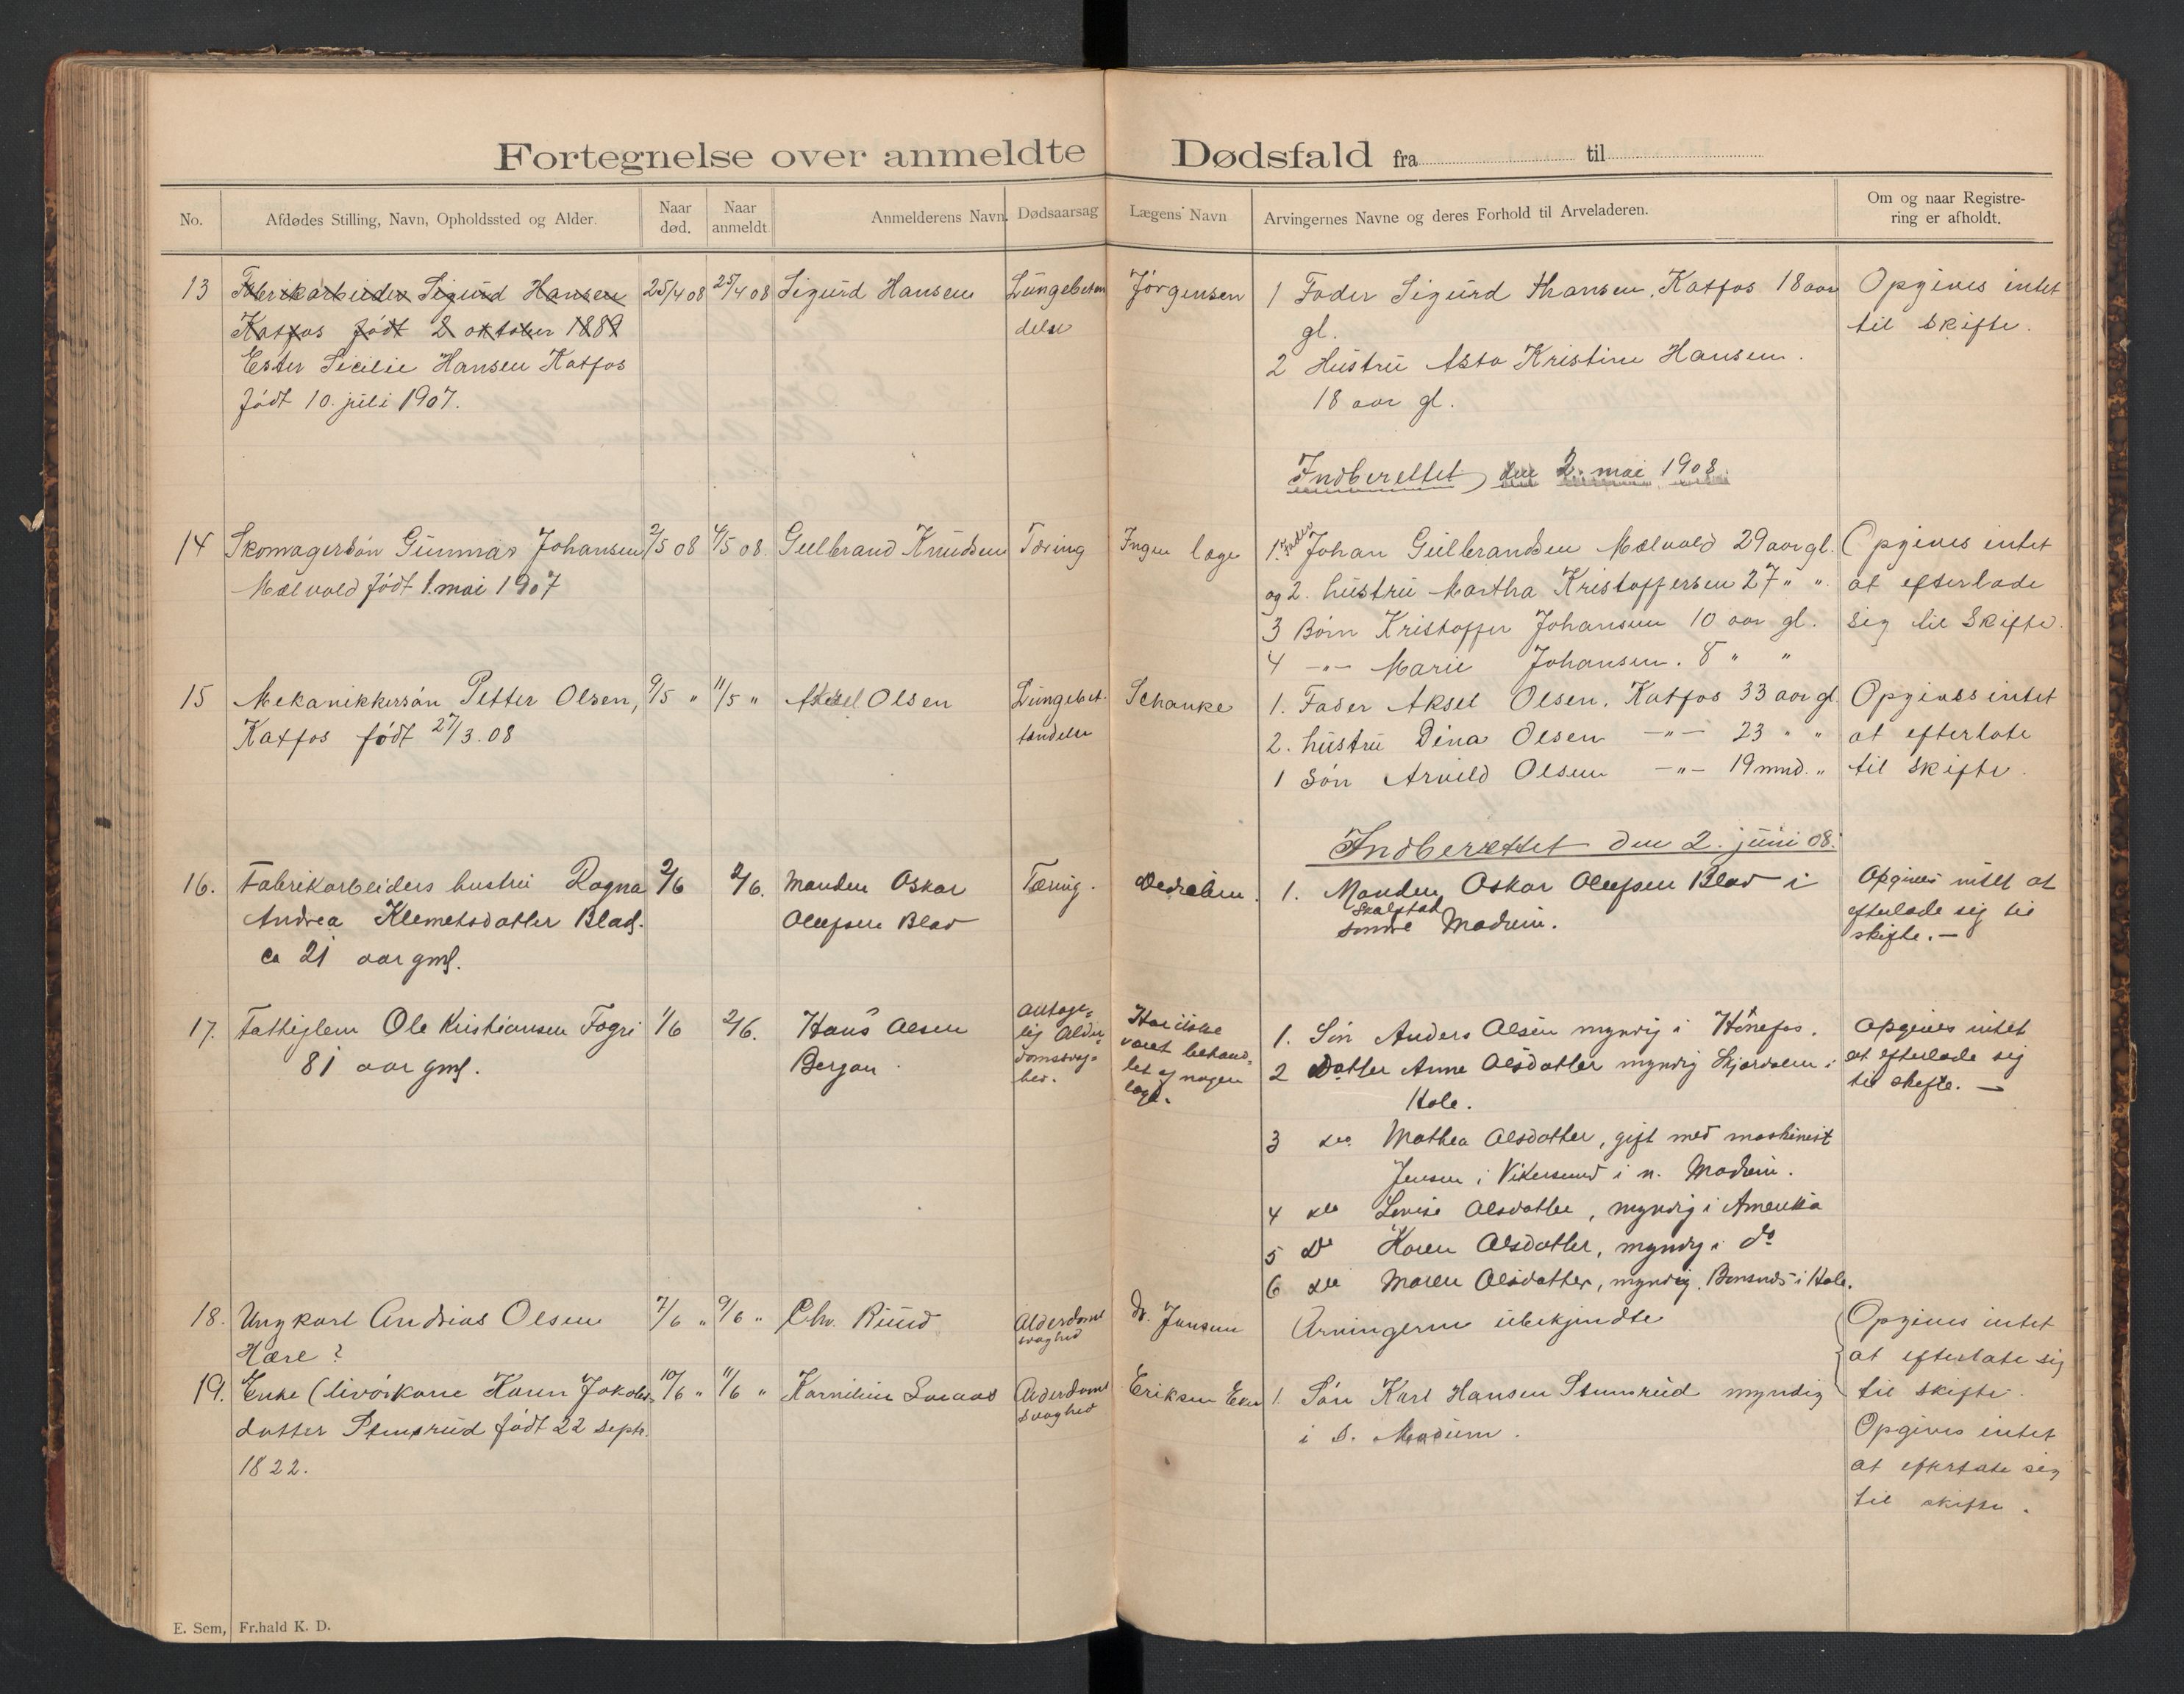 Fortegnelse over anmeldte Dødsfald fra til
No. Afdødes Stilling, Navn, Opholdssted og Alder. Naar død. Naar anmeldt. Anmelderens Navn. Dødsaarsag Lægens Navn Arvingernes Navne og deres Forhold til Arveladeren. Om og naar Registrering er afholdt.
13 Fabrikarbeider Sigurd Hansen 25/4 08 25/4 08 Sigurd Hansen Lungebetæn Jörgensen 1 Fader Sigurd Hansen, Katfos 18 aar Opgives intet
Katfos födt 2 oktober 1889 delse gl. til skifte.
Ester Sicilie Hansen Katfos 2 Hustru Asta Kristine Hansen.
födt 10. juli 1907. 18 aar gl.
Indberettet den 2. mai 1908.
14 Skomagersön Gunnar Johansen 2/5 08 4/5 08. Gulbrand Knudsen Tæring Ingen læge 1. Fader Johan Gulbrandsen Mælvold 29 aar gl. Opgives intet
Mælvold födt 1. mai 1907 og 2. hustru Martha Kristoffersen 27 " " at efterlade
3 Börn Kristoffer Johansen 10 aar gl. sig til Skifte.
4 -"- Marie Johansen. 8 " "
15 Mekanikkersön Petter Olsen, 9/5 " 11/5 " Aksel Olsen Lungebet- Schanke 1. Fader Aksel Olsen, Katfos 33 aar gl. Opgives intet
Katfos födt 27/3. 08 tændelse 2. hustru Dina Olsen -"- 23 " " at efterlate
1 Sön Arvild Olsen -"- 19 mnd. " til skifte.
Indberettet den 2. juni 08.
16. Fabrikarbeiders hustru Ragna 2/6 2/6. Manden Oskar Tæring. 1. Manden Oskar Olufsen Blad i Opgives intet at
Andrea Klemetsdatter Blad. Olufsen Blad Skalstad efterlade sig til
søndre Modum. skifte. —
ca 21 aar gml.
17. Fattiglem Ole Kristiansen Fogri 1/6 2/6. Hans Olsen antage- Har ikke 1. Sön Anders Olsen myndig i Hönefos. Opgives intet
81 aar gml. Bergan. lig Alder- været behand- 2 Datter Anne Olsdatter myndig i at efterlade sig
domssvag- let af nogen Hole. til skifte. —
hed. læge.
3 do Mathea Olsdatter, gift med maskinist
Jensen i Vikersund i n. Modum.
4 do Lovise Olsdatter, myndig i Amerika
5 Do Karen Olsdatter, myndig i do
6 do Maren Olsdatter, myndig, Bonsnds i Hole.
18. Ungkarl Andrias Olsen 7/6 " 9/6 " Chr. Ruud Alderdoms dr. Jensen Arvingerne ubekjendte Opgives intet
Hære? svaghed at efterlate sig
19. Enke (livörkone Karen Jakobs- 10/6 " 11/6 " Alderdoms Eriksen 1 Sön Karl Hansen Stensrud myndig til skifte.
datter Stensrud födt 22 septr. svaghed i S. Modum. Opgives intet
1822. at efterlate sig
til skifte.
E. Sem, Fr.hald K. D.